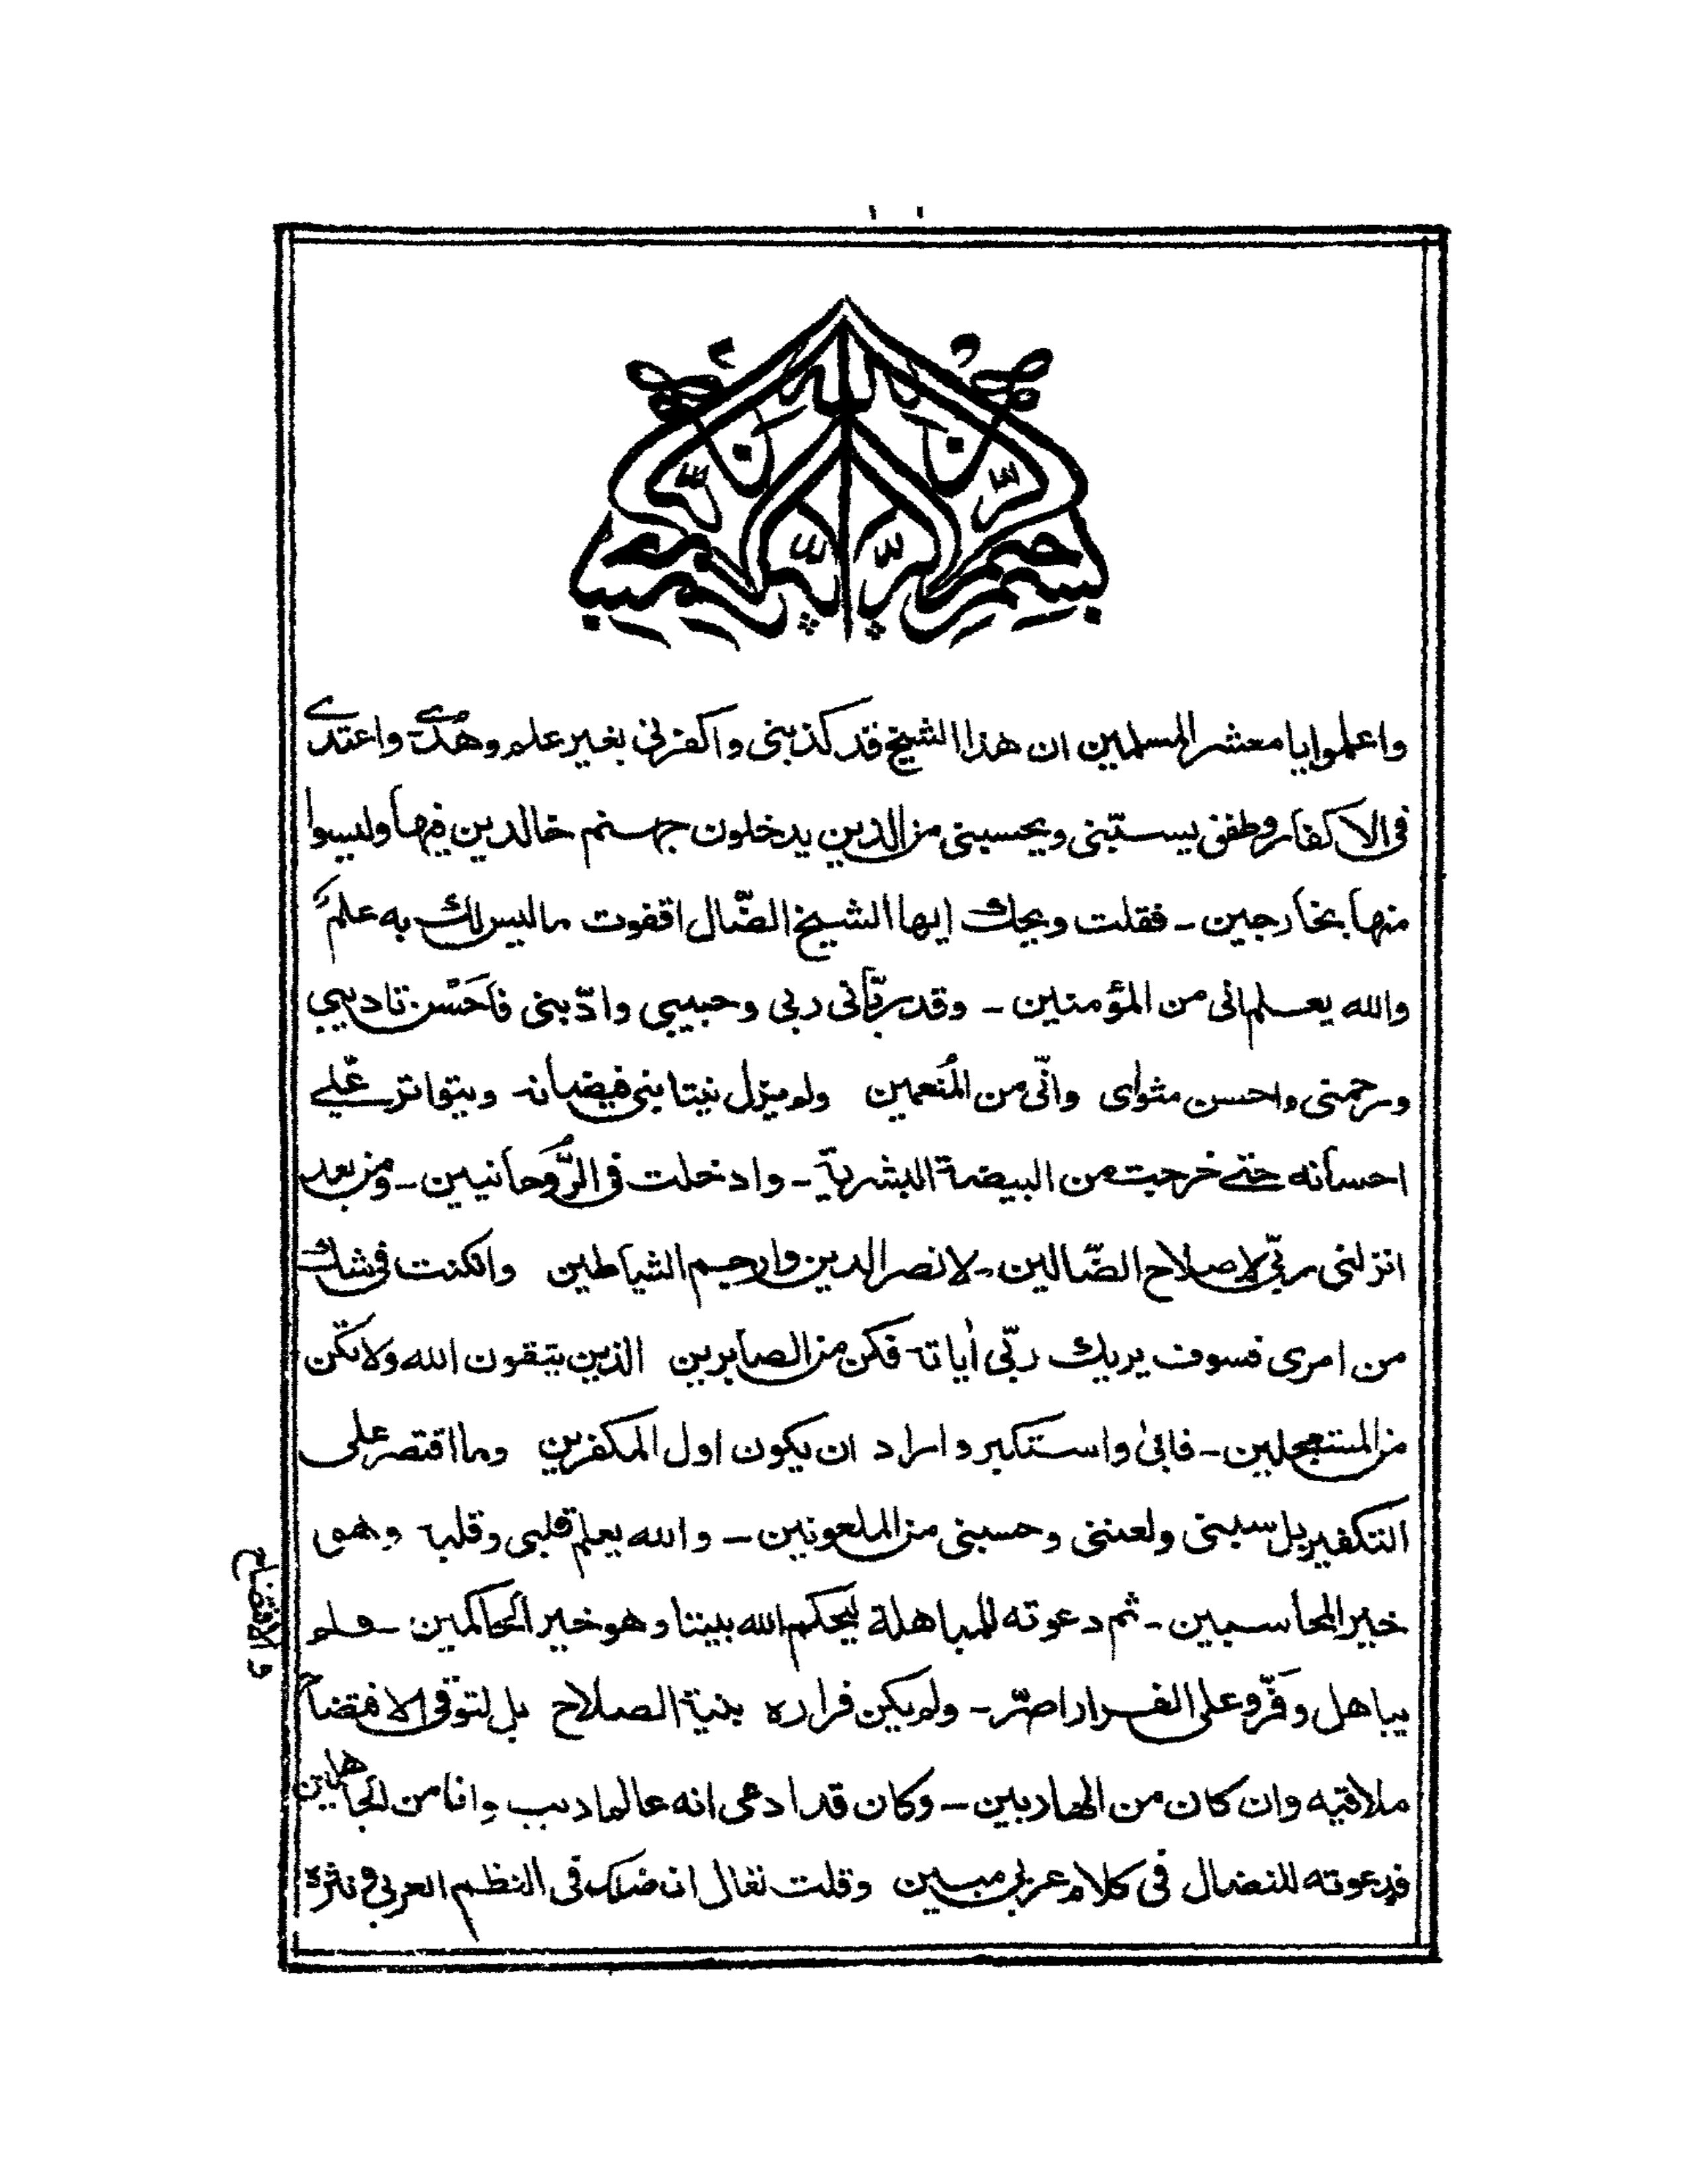 بسم الله الرحمن الرحيم
واعلموا يا معشر المسلمين ان هذا الشيخ قد كذبنى واكفرنى بغير علم وهُدًى واعتدى
فى الاكفار وطفق يسبّنى ويحسبنى من الذين يدخلون جهنم خالدين فيها وليسوا
منها بخارجين ـ فقلت ويحك ايها الشيخ الضّال اقفوت ما ليس لك به علمٌ
والله يعلم انى من المؤمنين ـ وقد ربّانى ربى وحبيبى وادّبنى فاَحْسن تاديبى
ورحمنى واحسن مثواى وانّى من المُنعمين ولم يزل ينتابنى فيضانه ويتواتر علىّ
احسانه حتى خرجت من البيضة البشرية ـ وادخلت فى الرُّوحانيين ـ ومن بعد
انزلنى ربّى لاصلاح الضّالين ـ لانصر الدين وارجم الشياطين وان كنت فى شك
من امرى فسوف يريك ربّى اٰياته فكن من الصابرين الذين يتقون الله ولا تكن
من المستعجلين ـ فابىٰ واستكبر واراد ان يكون اول المكفرين وما اقتصر على
التكفير بل سبنى ولعننى وحسبنى من الملعونين ـ والله يعلم قلبى وقلبه وهو
خير المحاسبين ـ ثم دعوته للمباهلة ليحكم الله بيننا وهو خير الحاكمين ـ فلم
يباهل وفَرّ وعلى الفرار اصرّ ـ ولم يكن فراره بنية الصلاح بل لتوقى الافتضاح
والافتضاح
ملاقيه وان كان من الهاربين ـ وكان قد ادعى انه عالم اديب وانا من الجاهلين
فدعوته للنضال فى كلام عربى مبين وقلت تعال اناضلك فى النظم العربى ونثره